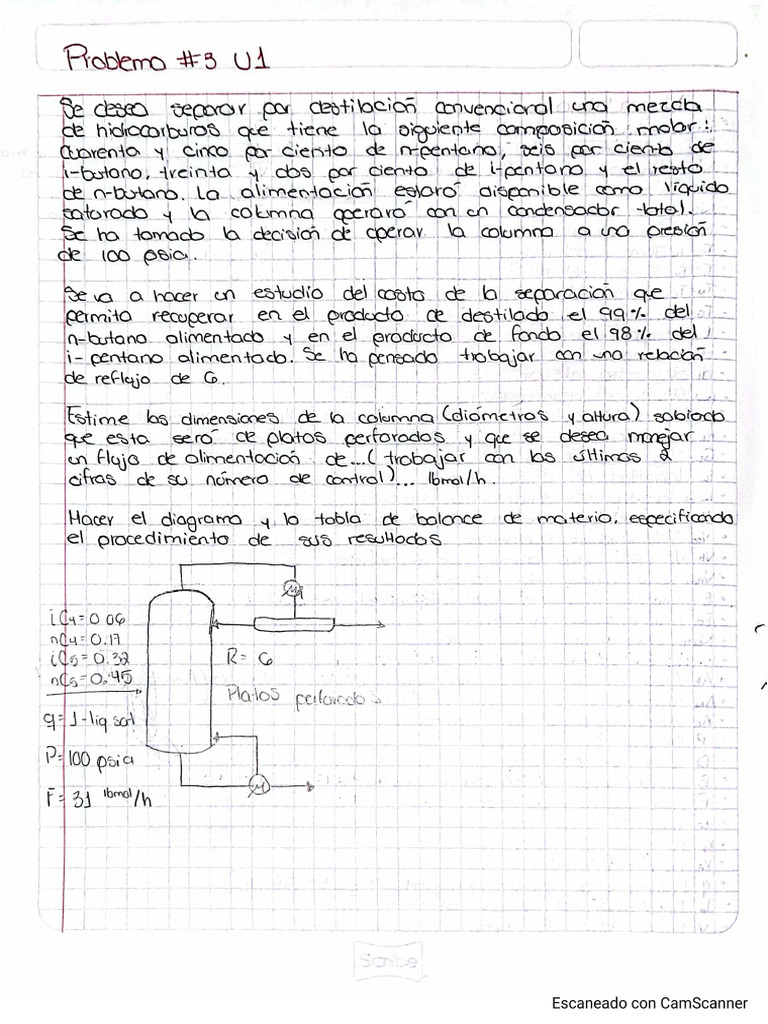 Problema #3 U1
Se desea separar por destilación convencional una mezcla
de hidrocarburos que tiene la siguiente composición molar:
Cuarenta y cinco por ciento de n-pentano, seis por ciento de
i-butano, treinta y dos por ciento de i-pentano y el resto
de n-butano. La alimentación estará disponible como líquido
saturado y la columna operará con un condensador total.
Se ha tomado la decisión de operar la columna a una presión
de 100 psia.
Se va a hacer un estudio del costo de la separación que
permita recuperar en el producto de destilado el 99% del
n-butano alimentado y en el producto de fondo el 98% del
i-pentano alimentado. Se ha pensado trabajar con una relación
de reflujo de 6.
Estime las dimensiones de la columna (diámetros y altura) sabiendo
que esta será de platos perforados y que se desea manejar
un flujo de alimentación de...( trabajar con las últimas 2
cifras de su número de control)... lbmol/h.
Hacer el diagrama y la tabla de balance de materia, especificando
el procedimiento de sus resultados
iC4=0.06
nC4=0.17
iC5=0.32
nC5=0.45
R= 6
Platos perforados
q=1-liq sat
P=100 psia
F= 31 lbmol/h
Scribe
Escaneado con CamScanner